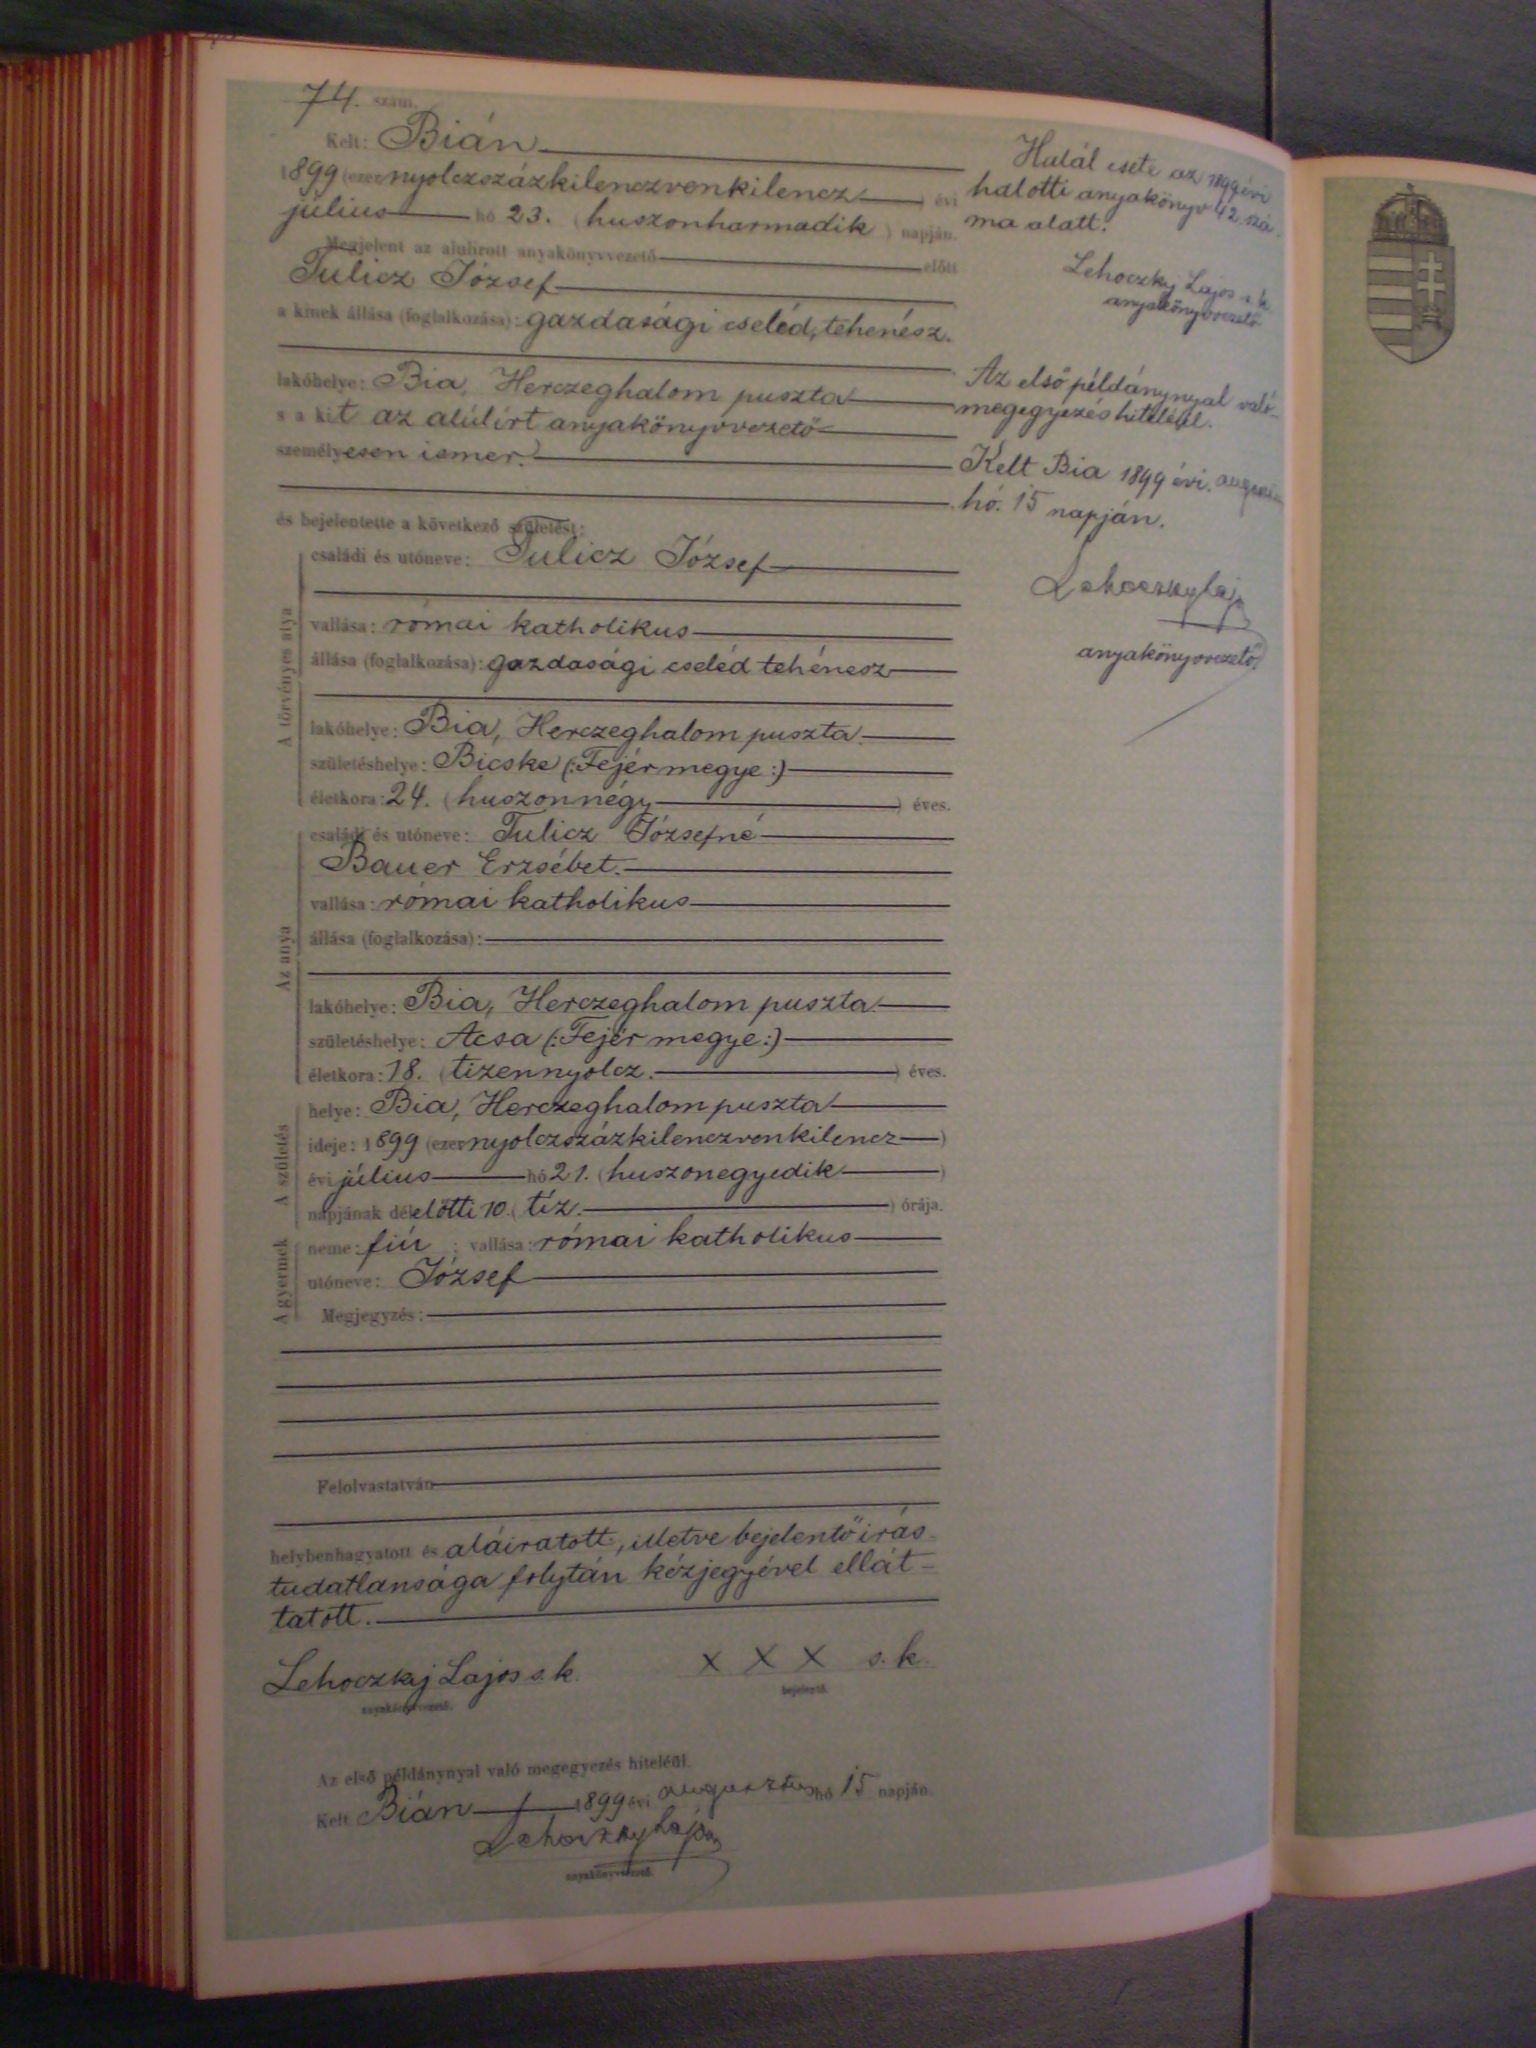 74. szám.
Kelt: Bián
1899 (ezernyolczszázkilenczvenkilencz) évi
július hó 23. (huszonharmadik) napján.
Megjelent az alulirott anyakönyvvezető előtt
Tulicz József
a kinek állása (foglalkozása): gazdasági cseléd, tehenész.
lakóhelye: Bia, Herczeghalom puszta
s a kit az alúlírt anyakönyvvezető
személyesen ismer.
és bejelentette a következő születést:
A törvényes atya
családi és utóneve: Tulicz József
vallása: római katholikus
állása (foglalkozása): gazdasági cseléd tehénesz
lakóhelye: Bia, Herczeghalom puszta.
születéshelye: Bicske (:Fejér megye:)
életkora: 24. (huszonnégy) éves.
Az anya
családi és utóneve: Tulicz Józsefné
Bauer Erzsébet.
vallása: római katholikus
állása (foglalkozása):
lakóhelye: Bia, Herczeghalom puszta.
születéshelye: Acsa (:Fejér megye:)
életkora: 18. (tizennyolcz.) éves.
A születés
helye: Bia, Herczeghalom puszta
ideje: 1899 (ezernyolczszázkilenczvenkilencz)
évi július hó 21. (huszonegyedik)
napjának délelőtti 10. (tíz.) órája.
A gyermek
neme: fiú ; vallása: római katholikus
utóneve: József
Megjegyzés:
Felolvastatván
helybenhagyatott és aláiratott, illetve bejelentő írás
tudatlansága folytán kézjegyével ellát-
tatott.
Lehoczky Lajos s. k. x x x s. k.
anyakönyvvezető. bejelentő.
Az első példánynyal való megegyezés hiteléül.
Kelt Bián 1899 évi augusztus hó 15 napján.
Lehoczky Lajos
anyakönyvvezető.
Halál esete az 1899 évi
halotti anyakönyv 42. szá-
ma alatt.
Lehoczky Lajos s. k.
anyakönyvvezető
Az első példánynyal való
megegyezés hiteléül.
Kelt Bia 1899 évi augusztus
hó. 15 napján.
Lehoczky Lajos
anyakönyvvezető.